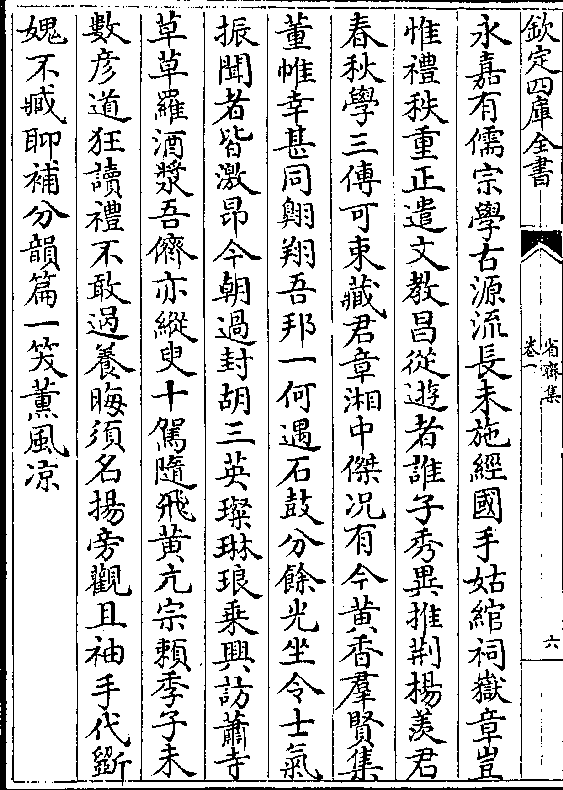 欽定四庫全書
省齋集
卷一
六
永嘉有儒宗學古源流長未施經國手姑綰祠嶽章豈
惟禮秩重正遣文教昌從遊者誰子秀異推荆揚羨君
春秋學三傳可東藏君章湘中傑况有今黄香羣賢集
董帷幸甚同翺翔吾邦一何遇石鼓分餘光坐令士氣
振聞者皆激昂今朝過封胡三英璨琳琅乗興訪蕭寺
草草羅酒漿吾儕亦縱㬰十駕隨飛黄亢宗頼季子未
數彦道狂讀禮不敢過養晦須名揚旁觀且袖手代斵
媿不臧聊補分韻篇一笑薫風凉